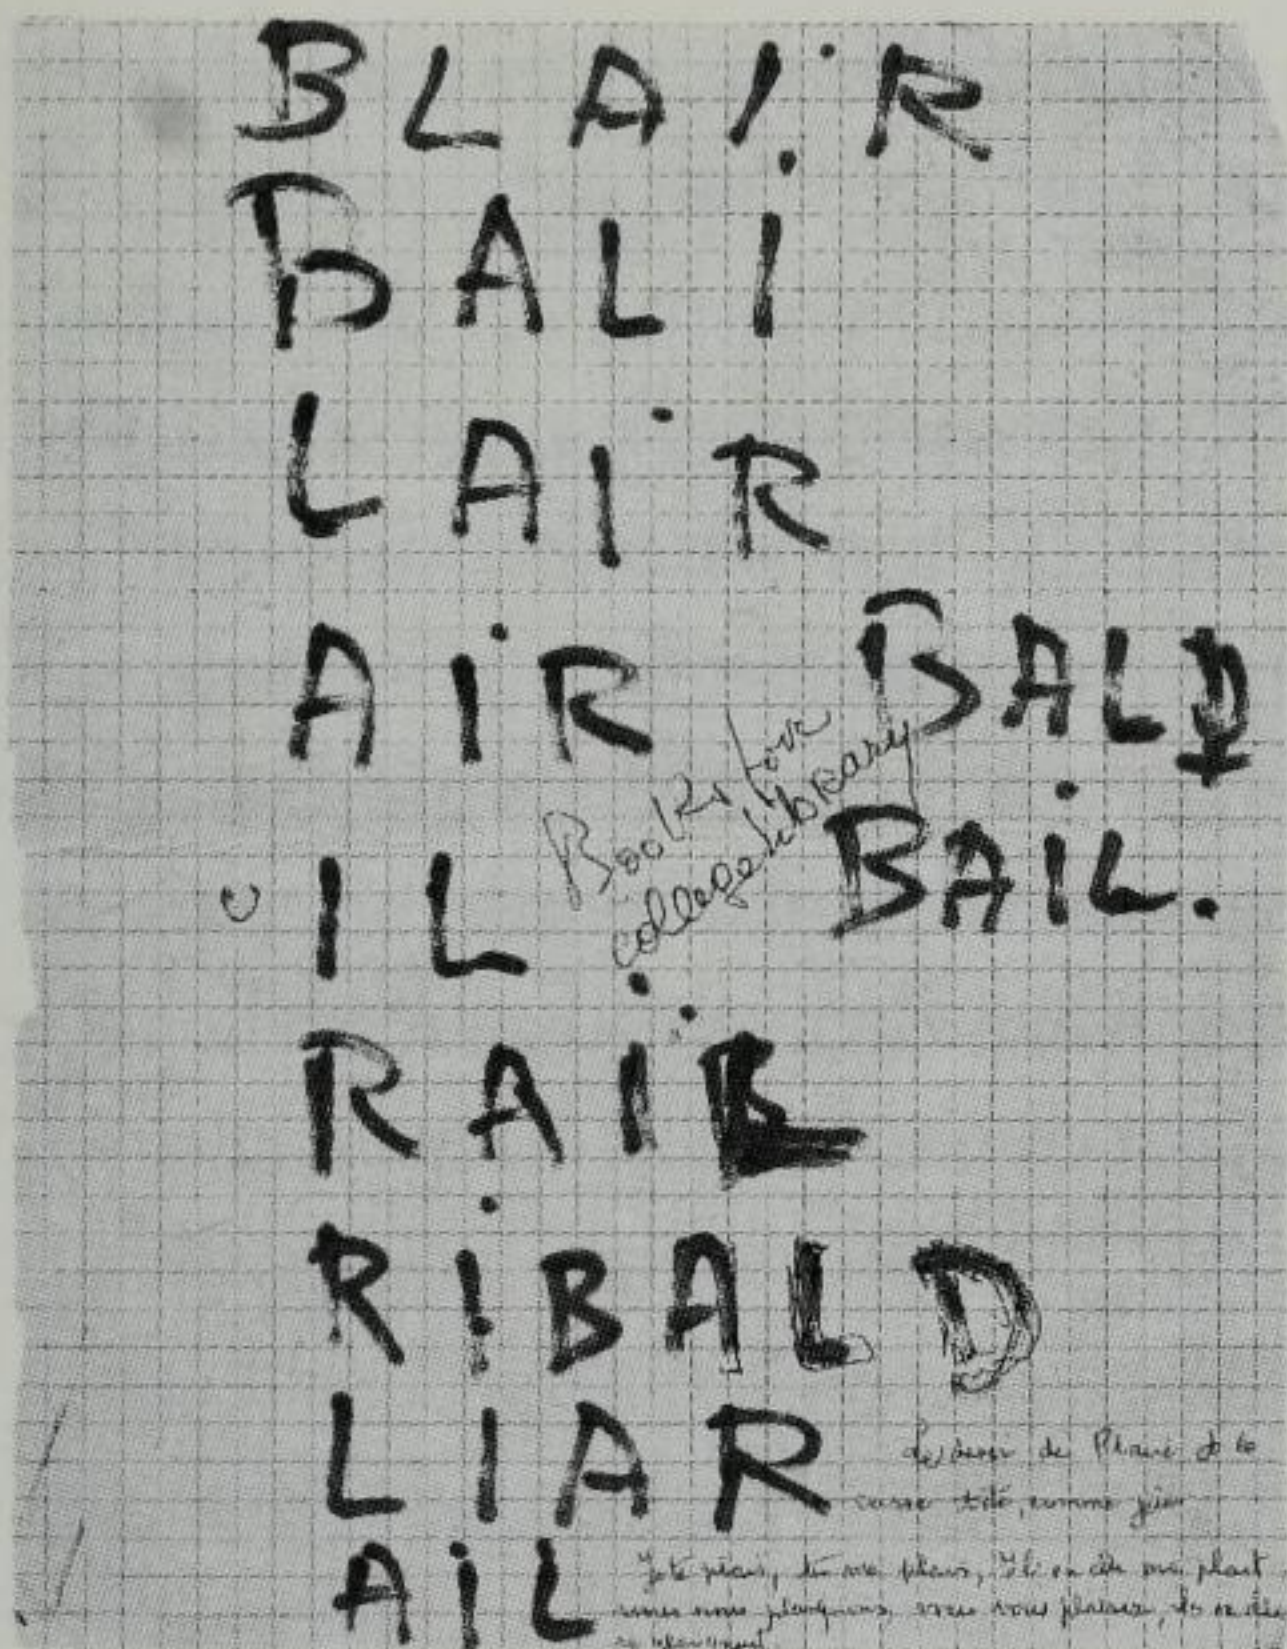 BLAIR
DALI
LAIR
AIR
BALD
Books from
college library
BAIL.
IL
RAIL
RIBALD
LIAR
de
comme
AIL
Je te plais, tu me plais, me plait
nous nous plaisons, vous vous plaisez,